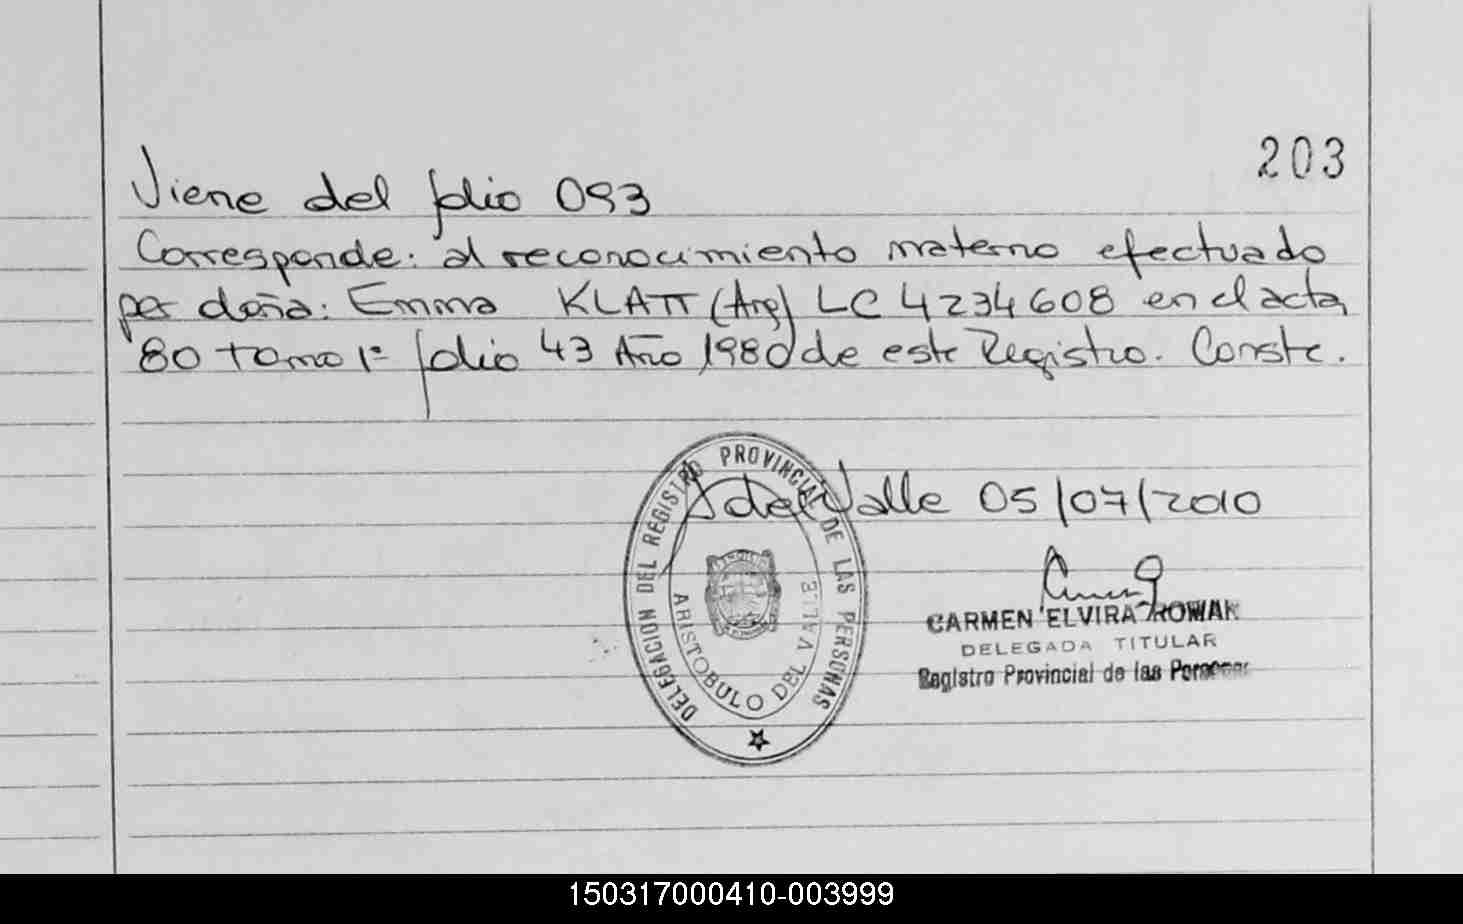 203
Viene del folio 093
Corresponde: al reconocimiento materno efectuado
por doña: Emma KLATT (Arg) LC 4234608 en el acta
80 tomo 1º folio 43 Año 1980 de este Registro. Conste.
A del Valle 05/07/2010
DELEGACION DEL REGISTRO PROVINCIAL DE LAS PERSONAS
ARISTOBULO DEL VALLE
CARMEN ELVIRA ROMAN
DELEGADA TITULAR
Registro Provincial de las Personas
150317000410-003999